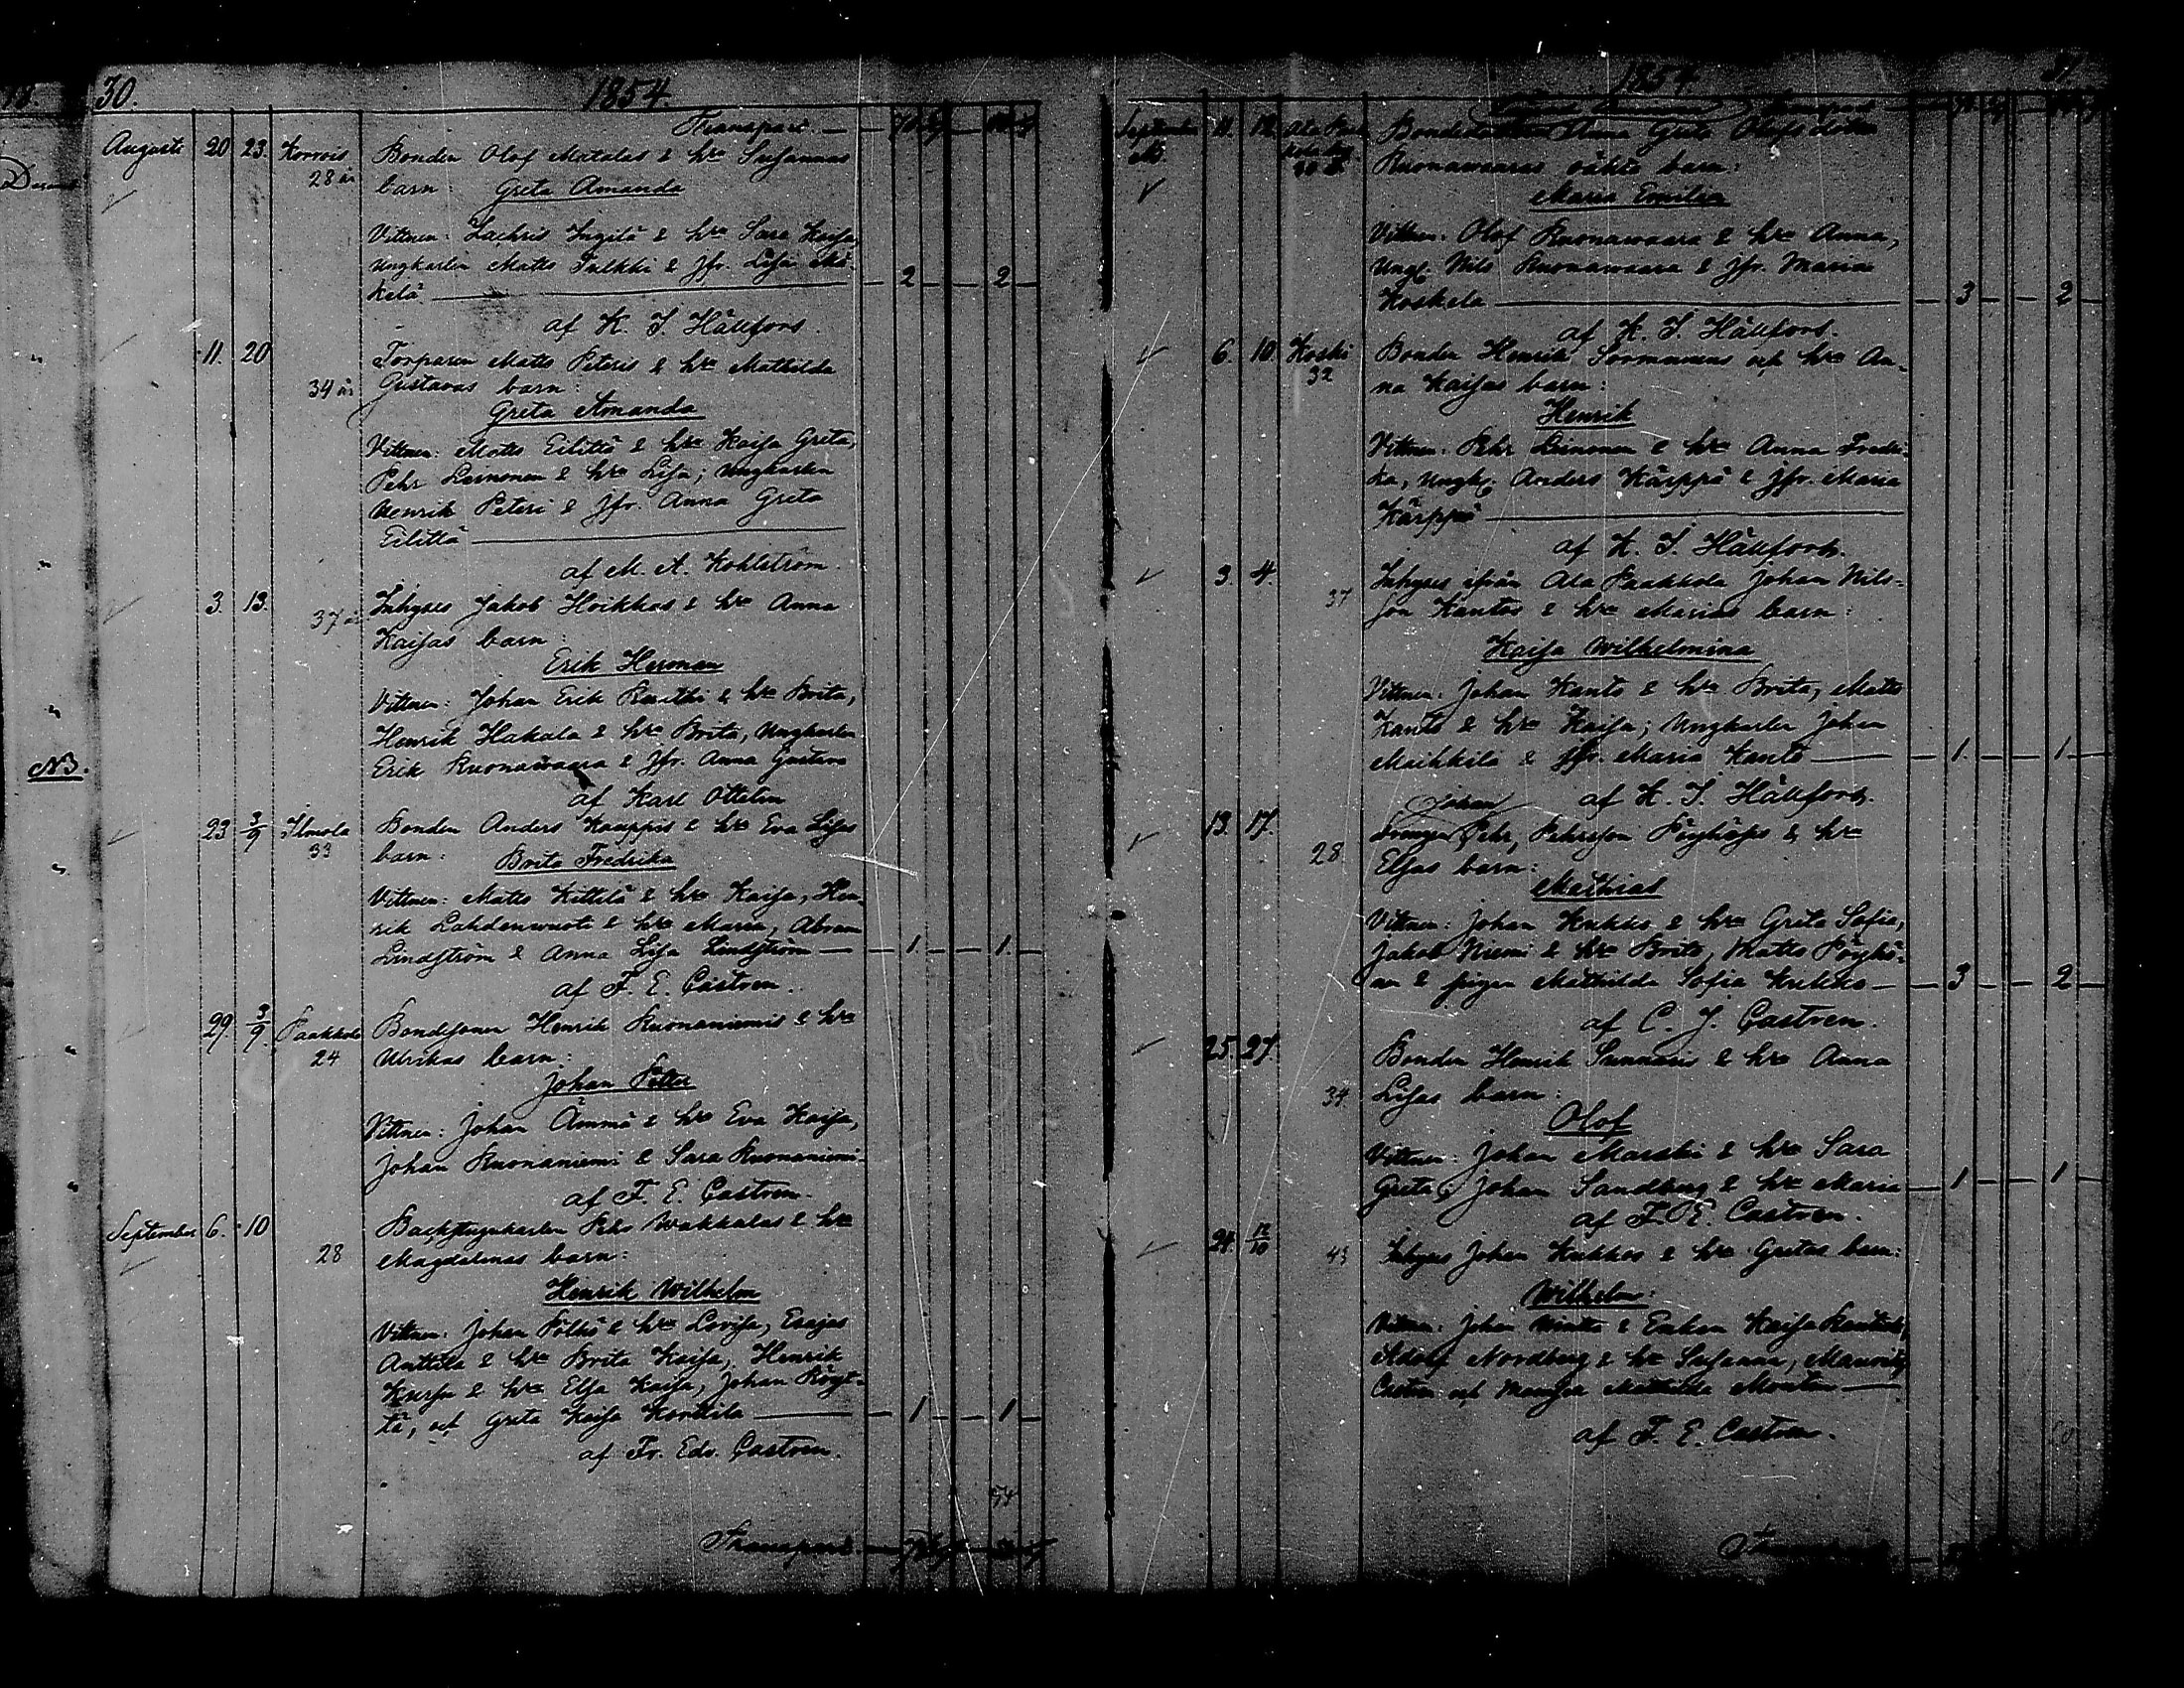 30.
1854.
Transport
Augusti 20 23. Korrois 28 år
Bonden Olof Matalas & hru Susannas
barn: Greta Amanda
Vittnen: Zachris Ingilä & hru Sara Kaisa,
Ungkarlen Matts Tulkki & Jfr. Lisa Mä-
kelä 2 2
af K. J. Hällfors.
11. 20 34 år
Torparen Matts Peteris & hru Mathilda
Gustavas barn:
Greta Amanda
Vittnen: Matts Eilittä & hru Kaisa Greta,
Pehr Leinonen & hru Lisa; Ungkarlen
Henrik Peteri & Jfr. Anna Greta
Eilittä
af M. A. Kohlström.
3. 13. 37 år
Inhyses Jakob Hoikkas & hru Anna
Kaisas barn:
Erik Herman
Vittnen: Johan Erik Rautti & hru Brita,
Henrik Hakala & hru Brita, Ungkarlen
Erik Ruonawaara & Jfr. Anna Gustava
af Karl Ottelin
23 3/9 Ilmola 33
Bonden Anders Kauppis & hru Eva Lisas
barn: Brita Fredrika
Vittnen: Matts Kittilä & hru Kaisa, Hen-
rik Lahdenwuoti & hru Maria, Abram
Lindström & Anna Lisa Lindström 1. 1.
af F. E. Castren.
29. 3/9 Paakkola 24
Bondesonen Henrik Ruonaniemis & hru
Ulrikas barn:
Johan Petter
Vittnen: Johan Ämmä & hru Eva Kaisa,
Johan Ruonaniemi & Sara Ruonaniemi.
af F. E. Castren.
September 6. 10 28
Backstugukarlen Pehr Wakkalas & hru
Magdalenas barn:
Henrik Wilhelm
Vittnen: Johan Pölhö & hru Lovisa, Esajas
Anttila & hru Brita Kaisa, Henrik
Kursu & hru Elsa Kaisa, Johan Röyt-
tä, och Greta Kaisa Korkila 1 1
af Fr. Edv. Castren.
Transport
1854
September 11. 12
Bondedottren Anna Greta Olofsdotter
Ruonawaaras oäkta barn:
Maria Emilia
Vittnen: Olof Ruonawaara & hru Anna,
Ungk. Nils Ruonawaara & Jfr. Maria
Koskela 3 2
af K. J. Hällfors.
6. 10. Koski 32
Bonden Henrik Sormunens och hru An-
na Kaisas barn:
Henrik
Vittnen: Pehr Leinonen & hru Anna Fredri-
ka, Ungk. Anders Kärppä & Jfr. Maria
Kärppä
af K. J. Hällfors.
3. 4. 37
Inhyses ifrån Ala Paakkola Johan Nils-
son Kantos & hru Marias barn:
Kaisa Wilhelmina
Vittnen: Johan Kanto & hru Brita, Matts
Kanto & hru Kaisa; Ungkarlen Johan
Maikkila & Jfr. Maria Kanto 1. 1.
af K. J. Hällfors.
13. 17. 28
Johan
Drengen Pehr, Pehrsson Pöyhöjs & hru
Elsas barn:
Mathias
Vittnen: Johan Kukko & hru Greta Sofia,
Jakob Niemi & hru Brita, Matts Pöyhö-
nen & pigan Mathilda Sofia Kukko 3 2
af C. J. Castren.
25. 27. 34.
Bonden Henrik Sunnaris & hru Anna
Lisas barn:
Olof
Vittnen: Johan Marski & hru Sara
Greta, Johan Sandberg & hru Maria 1 1
af F. E. Castren.
24. 12/10 43
Inhyses Johan Kukkos & hru Gretas barn:
Wilhelm.
Vittnen: Johan & Enkan Kaisa
Adolf Nordberg & hru Susanna, Mauritz
Castren och Mathilda Montin
af F. E. Castren.